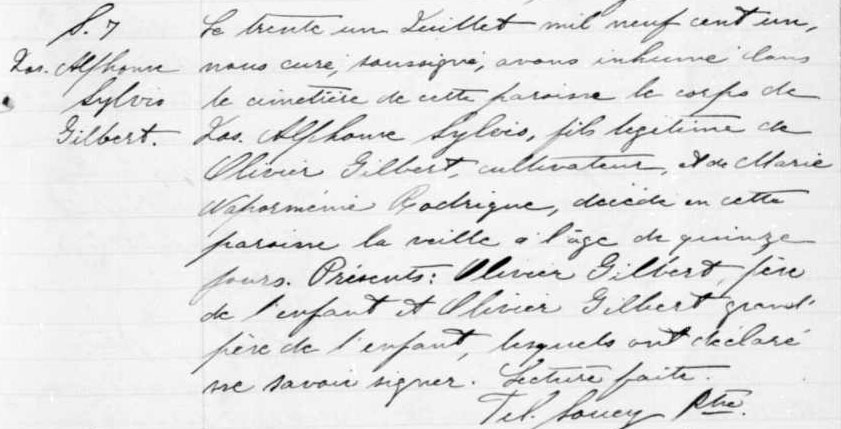 S. 7
Jos. Alphonse
Sylvio
Gilbert.
Le trente un Juillet mil neuf cent un,
nous curé, soussigné, avons inhumé dans
le cimetière de cette paroisse le corps de
Jos. Alphonse Sylvio, fils légitime de
Olivier Gilbert, cultivateur, et de Marie
Rodrigue, décédé en cette
paroisse la veille à l'âge de quinze
jours. Présents: Olivier Gilbert, père
de l'enfant et Olivier Gilbert grand'
père de l'enfant, lesquels ont déclaré
ne savoir signer. Lecture faite.
Tél. Soucy Ptre.